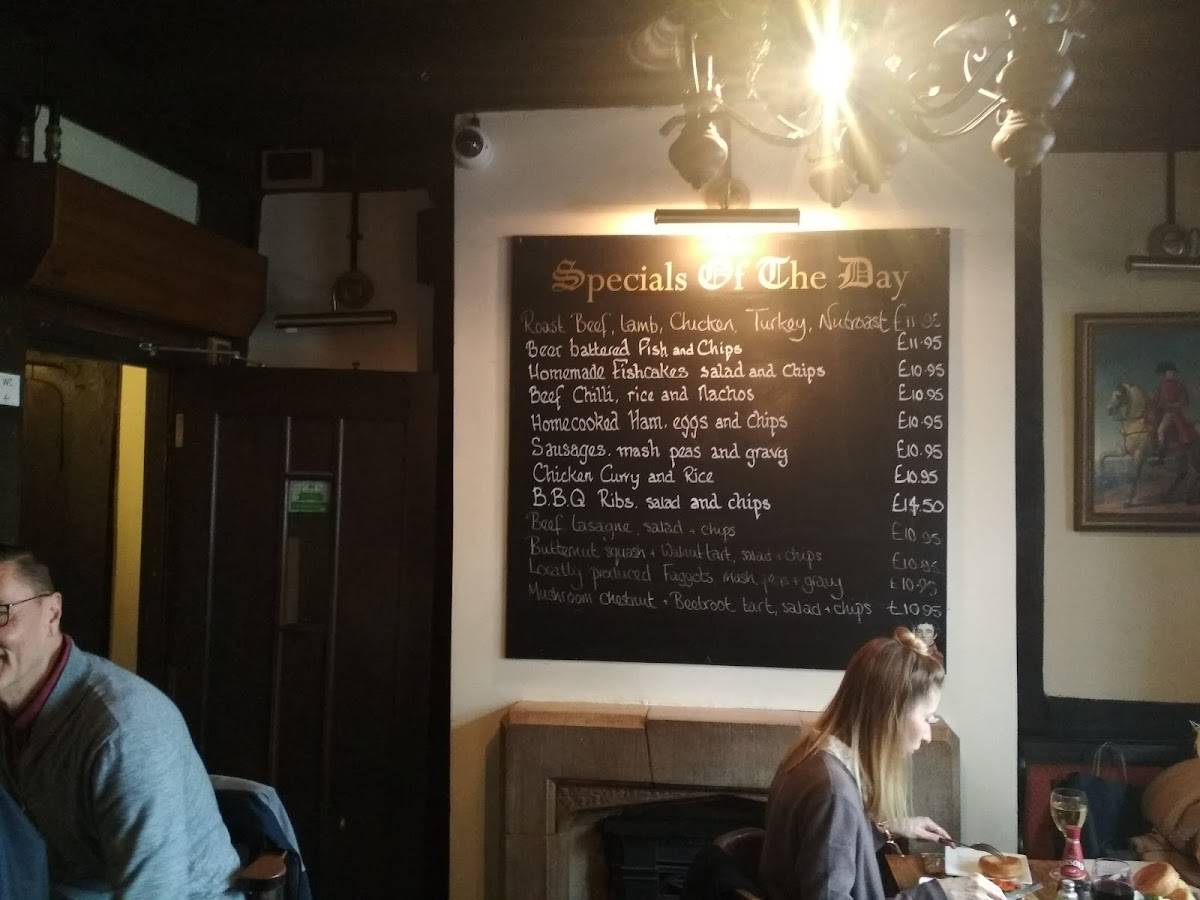 Specials Of The Day
Roast Beef, Lamb, Chicken, Turkey, Nutroast £11.95
Beer battered Fish and Chips £11.95
Homemade Fishcakes salad and Chips £10.95
Beef Chilli, rice and Nachos £10.95
Homecooked Ham, eggs and Chips £10.95
Sausages, mash peas and gravy £10.95
Chicken Curry and Rice £10.95
B.B.Q Ribs, salad and chips £14.50
Beef Lasagne, salad + chips £10.95
Butternut squash + Walnut tart, salad + chips £10.95
Locally produced Faggots, mash, peas + gravy £10.95
Mushroom chestnut + Beetroot tart, salad + chips £10.95
WC